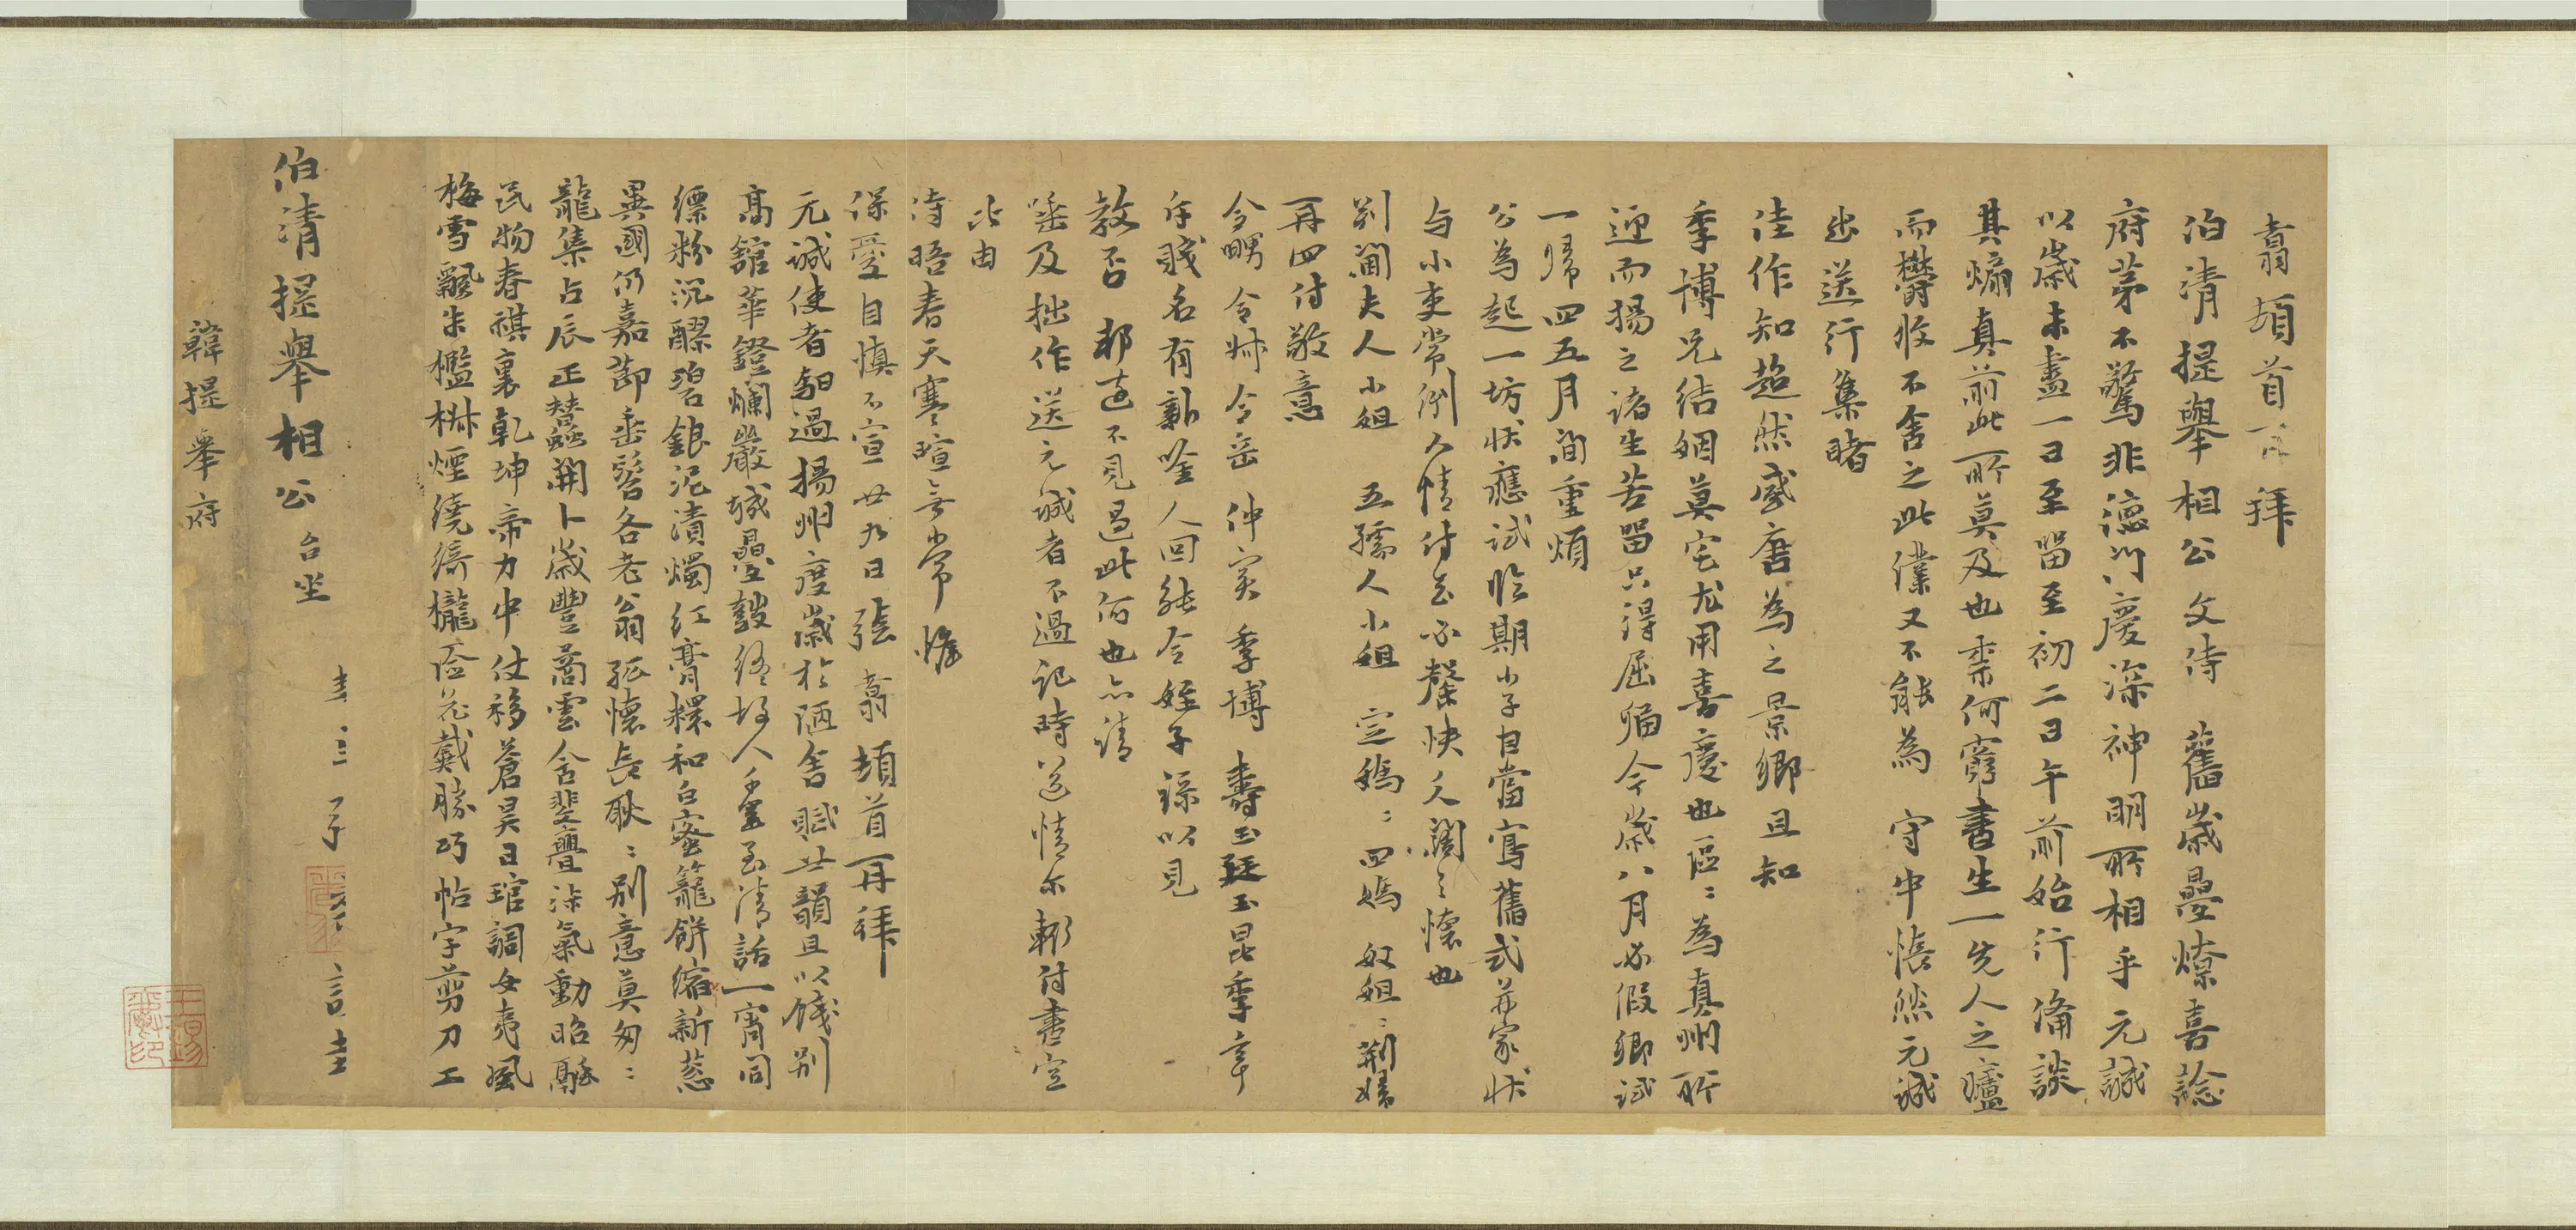 翥頓首百拜
伯清提舉相公文侍 舊歲疊燎喜諗
府茅不驚非德門慶深神明所相乎元誠
以歲未盡一日至留至初二日午前始行備談
其煽真前此所莫及也柰何窮書生一先人之廬
而欝攸不舍之此僕又不能為 守中悵然元誠
出送行集睹
佳作知超然處唐為之景鄉且知
季博兄結姻莫宅尤用喜慶也區ミ為真州所
迎而揚之諸生苦留只得屈循今歲八月必假鄉試
一歸四五月間重煩
公為起一坊狀應試臨期小子自當寫舊式并家狀
与小吏常例人情付去必馨快人闊之懷也
别簡夫人小姐 五孺人小姐 定媽ミ四媽 奴姐ミ荆婦
再四付敬意
令甥令姊令岳 仲實 季博 壽玉廷玉昆季幸
斥賤名有新唫人回能令姪子録以見
教否 郝達不見過此何也亦請
垂及拙作送元誠者不過記時送情尔輙付書空
此由
侍晤春天寒暄無常 惟
保愛自慎不宣廿九日張翥頓首再拜
元誠使者朝過揚州度歲於陋舍賦廿韻且以餞别
高舘華鐙爛嚴城疊鼓終故人千里至清話一宵同
縹粉沉醪碧銀泥漬燭紅膏糫和白蜜籠餅縮新葱
異國仍嘉節垂髫各老翁孤懷長耿ミ别意莫匆ミ
龍集占辰正替蠡開卜歲豐喬雲含斐亹淑氣動昭融
民物春祺裏乾坤帝力中仗移蒼昊日琯調女夷風
梅雪飄朱檻椒煙繞綺櫳簽花戴勝巧帖字剪刀工
伯清提舉相公台坐
韓提舉府